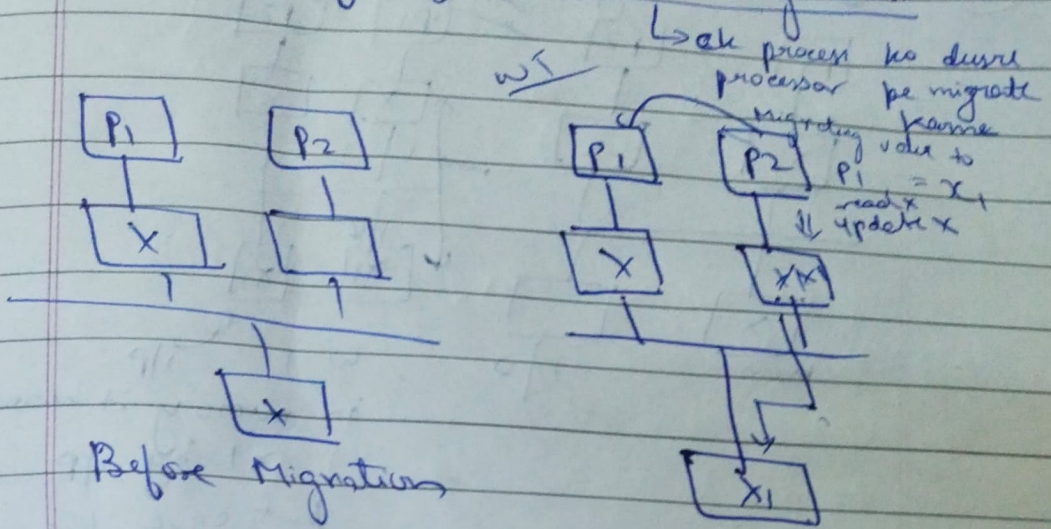 ↳ ek process ko dusre
processor pe migrate
karne
WT
Migrating
P1 P2
X
X
Before Migration
P1 P2
to
P1 = X1
read x
⇓ update x
X
X1